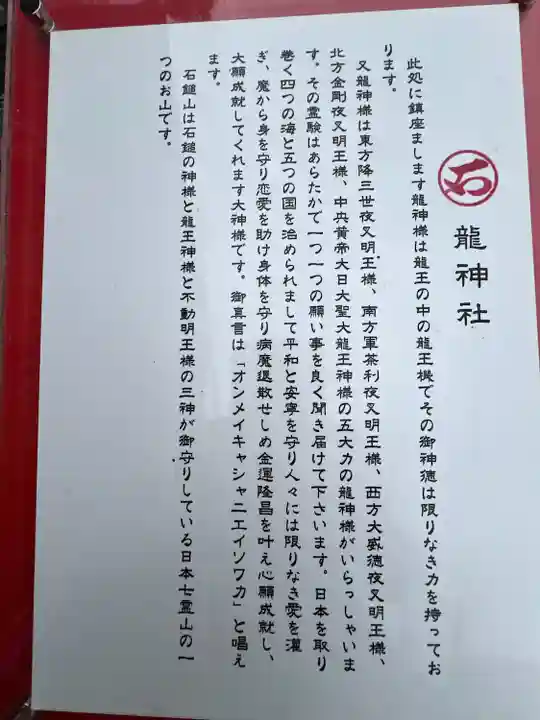 石
龍神社
此処に鎮座まします龍神様は龍王の中の龍王様でその御神徳は限りなき力を持ってお
ります。
又龍神様は東方降三世夜叉明王様、南方軍荼利夜叉明王様、西方大威徳夜叉明王様、
北方金剛夜叉明王様、中央黄帝大日大聖大龍王神様の五大力の龍神様がいらっしゃいま
す。その霊験はあらたかで一つ一つの願い事を良く聞き届けて下さいます。日本を取り
巻く四つの海と五つの国を治められまして平和と安寧を守り人々には限りなき愛を灌
ぎ、魔から身を守り恋愛を助け身体を守り病魔退散せしめ金運隆昌を叶え心願成就し、
大願成就してくれます大神様です。御真言は「オンメイキャシャニエイソワカ」と唱え
ます。
石鎚山は石鎚の神様と龍王神様と不動明王様の三神が御守りしている日本七霊山の一
つのお山です。